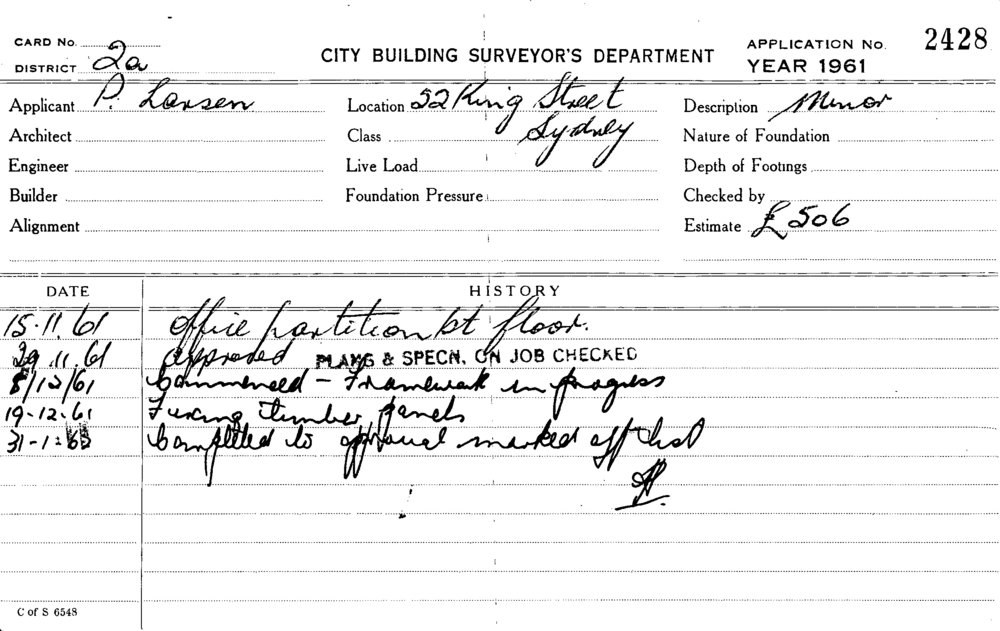 CARD No.
DISTRICT 2a
CITY BUILDING SURVEYOR'S DEPARTMENT
APPLICATION No. 2428
YEAR 1961
Applicant P. Larsen
Location 52 King Street
Sydney
Description Minor
Architect
Class
Nature of Foundation
Engineer
Live Load
Depth of Footings
Builder
Foundation Pressure
Checked by
Alignment
Estimate £506
DATE HISTORY
15.11.61 Office partition 1st floor.
29.11.61 Approved PLANS & SPECN. ON JOB CHECKED
8/12/61 Commenced - Framework in progress
19-12-61 Fixing timber panels
31-1-62 Completed to approval marked off list
C of S 6548